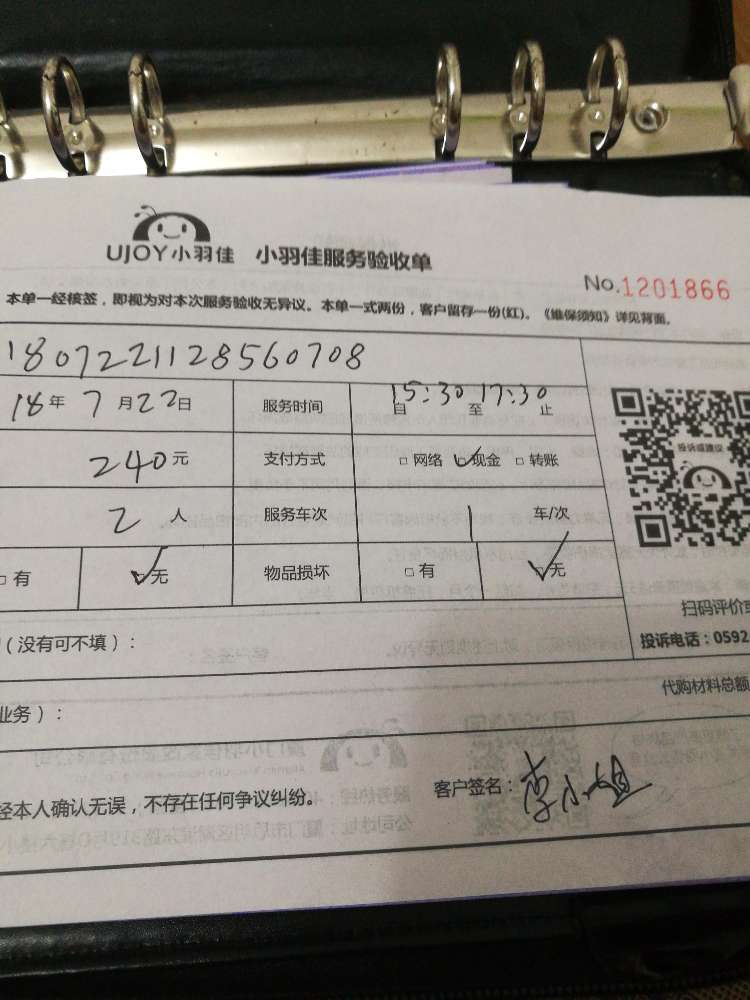 UJOY小羽佳 小羽佳服务验收单
No.1201866
本单一经核签，即视为对本次服务验收无异议。本单一式两份，客户留存一份(红)。《维保须知》详见背面。
1807221128560708
18年7月22日 服务时间 自15:30至17:30止
240元 支付方式 □网络 ☑现金 □转账
2人 服务车次 1 车/次
□有 ☑无 物品损坏 □有 ☑无
投诉或建议
扫码评价或
投诉电话：0592
（没有可不填）：
代购材料总额
业务）：
经本人确认无误，不存在任何争议纠纷。 客户签名：李小姐